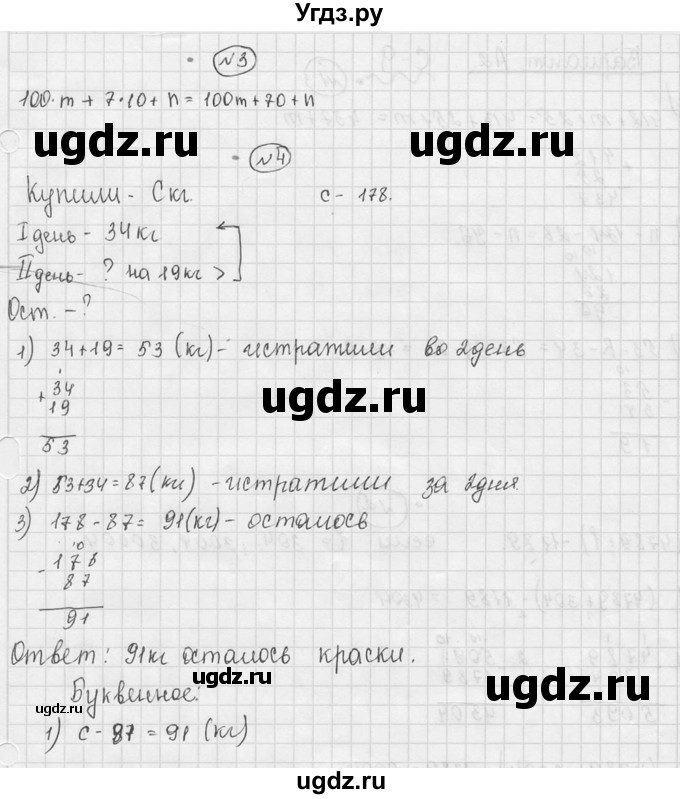 Угдз.ру
№3
100·m + 7·10 + n = 100m + 70 + n
ugdz.ru ugdz.ru
№4
Купили - С кг. с - 178.
I день - 34 кг
II день - ? на 19 кг >
Ост. - ?
1) 34 + 19 = 53 (кг) - истратили во 2 день
ugdz.ru
+ 34
19
53
2) 53 + 34 = 87 (кг) - истратили за 2 дня
3) 178 - 87 = 91 (кг) - осталось
ugdz.ru ugdz.ru
10
- 178
87
91
Ответ: 91 кг осталось краски.
ugdz.ru
Буквенное:
ugdz.ru
1) с - 87 = 91 (кг)
ugdz.ru